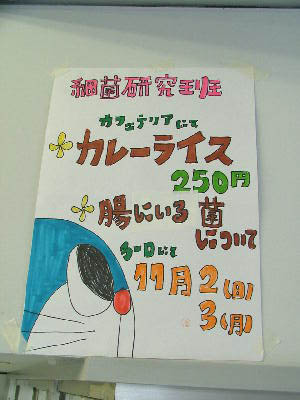 細菌研究班
カフェテリアにて
カレーライス
250円
腸にいる菌
について
3-Dにて
11月2(日)
3(月)